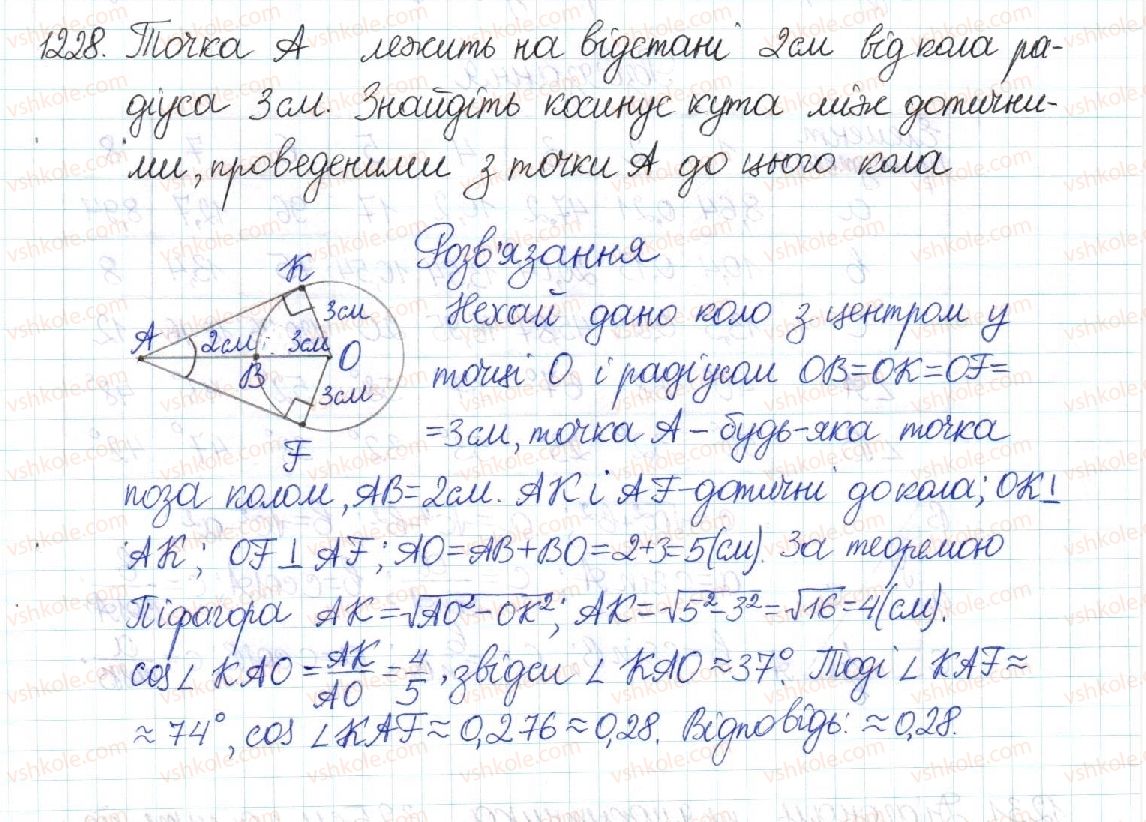 1228. Точка А лежить на відстані 2см від кола ра-
діуса 3см. Знайдіть косинус кута між дотични-
ми, проведеними з точки А до цього кола
Розв'язання
K
3см
A
2см
3см
O
B
3см
F
Нехай дано коло з центром у
точці О і радіусом OB=OK=OF=
=3см, точка А – будь-яка точка
поза колом, AB=2см. AK і AF – дотичні до кола; OK⊥
AK; OF⊥AF; AO=AB+BO=2+3=5(см). За теоремою
Піфагора AK=√AO²-OK²; AK=√5²-3²=√16=4(см).
cos∠KAO=AK/AO=4/5, звідси ∠KAO≈37°. Тоді ∠KAF≈
≈74°, cos∠KAF≈0,276≈0,28. Відповідь: ≈0,28.
vshkole.com